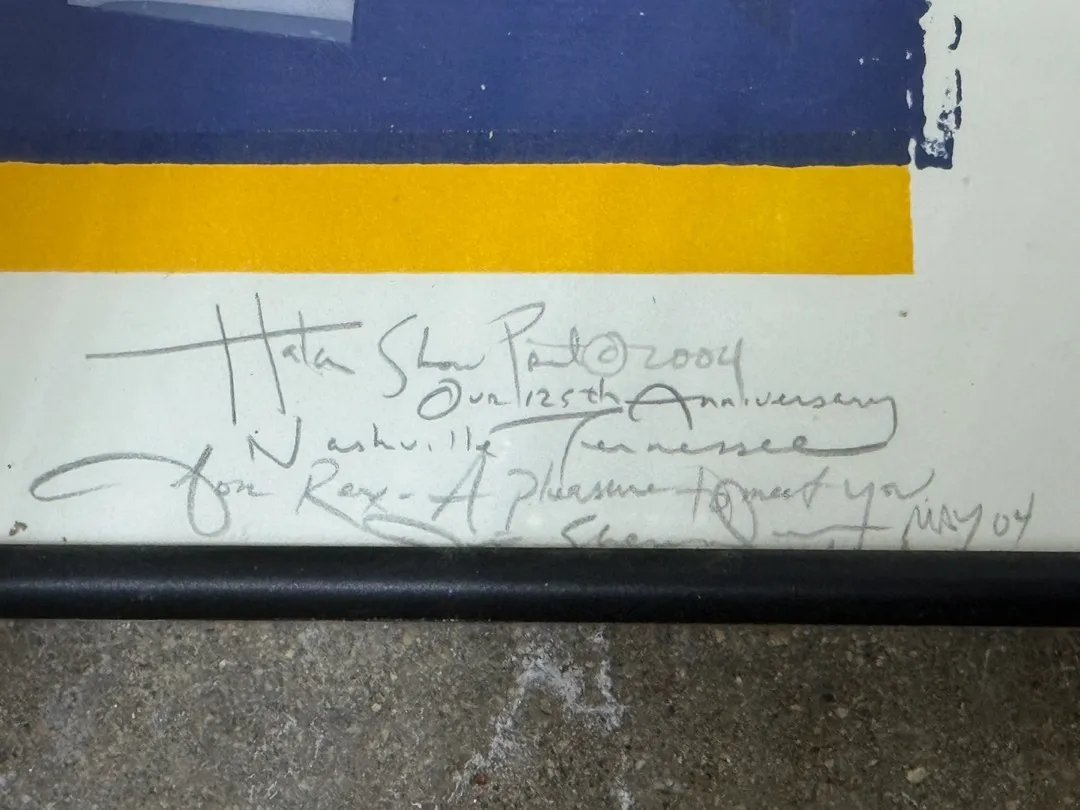 Hatch Show Print © 2004
Our 125th Anniversary
Nashville Tennessee
for Rex - A pleasure to meet you
MAY 04